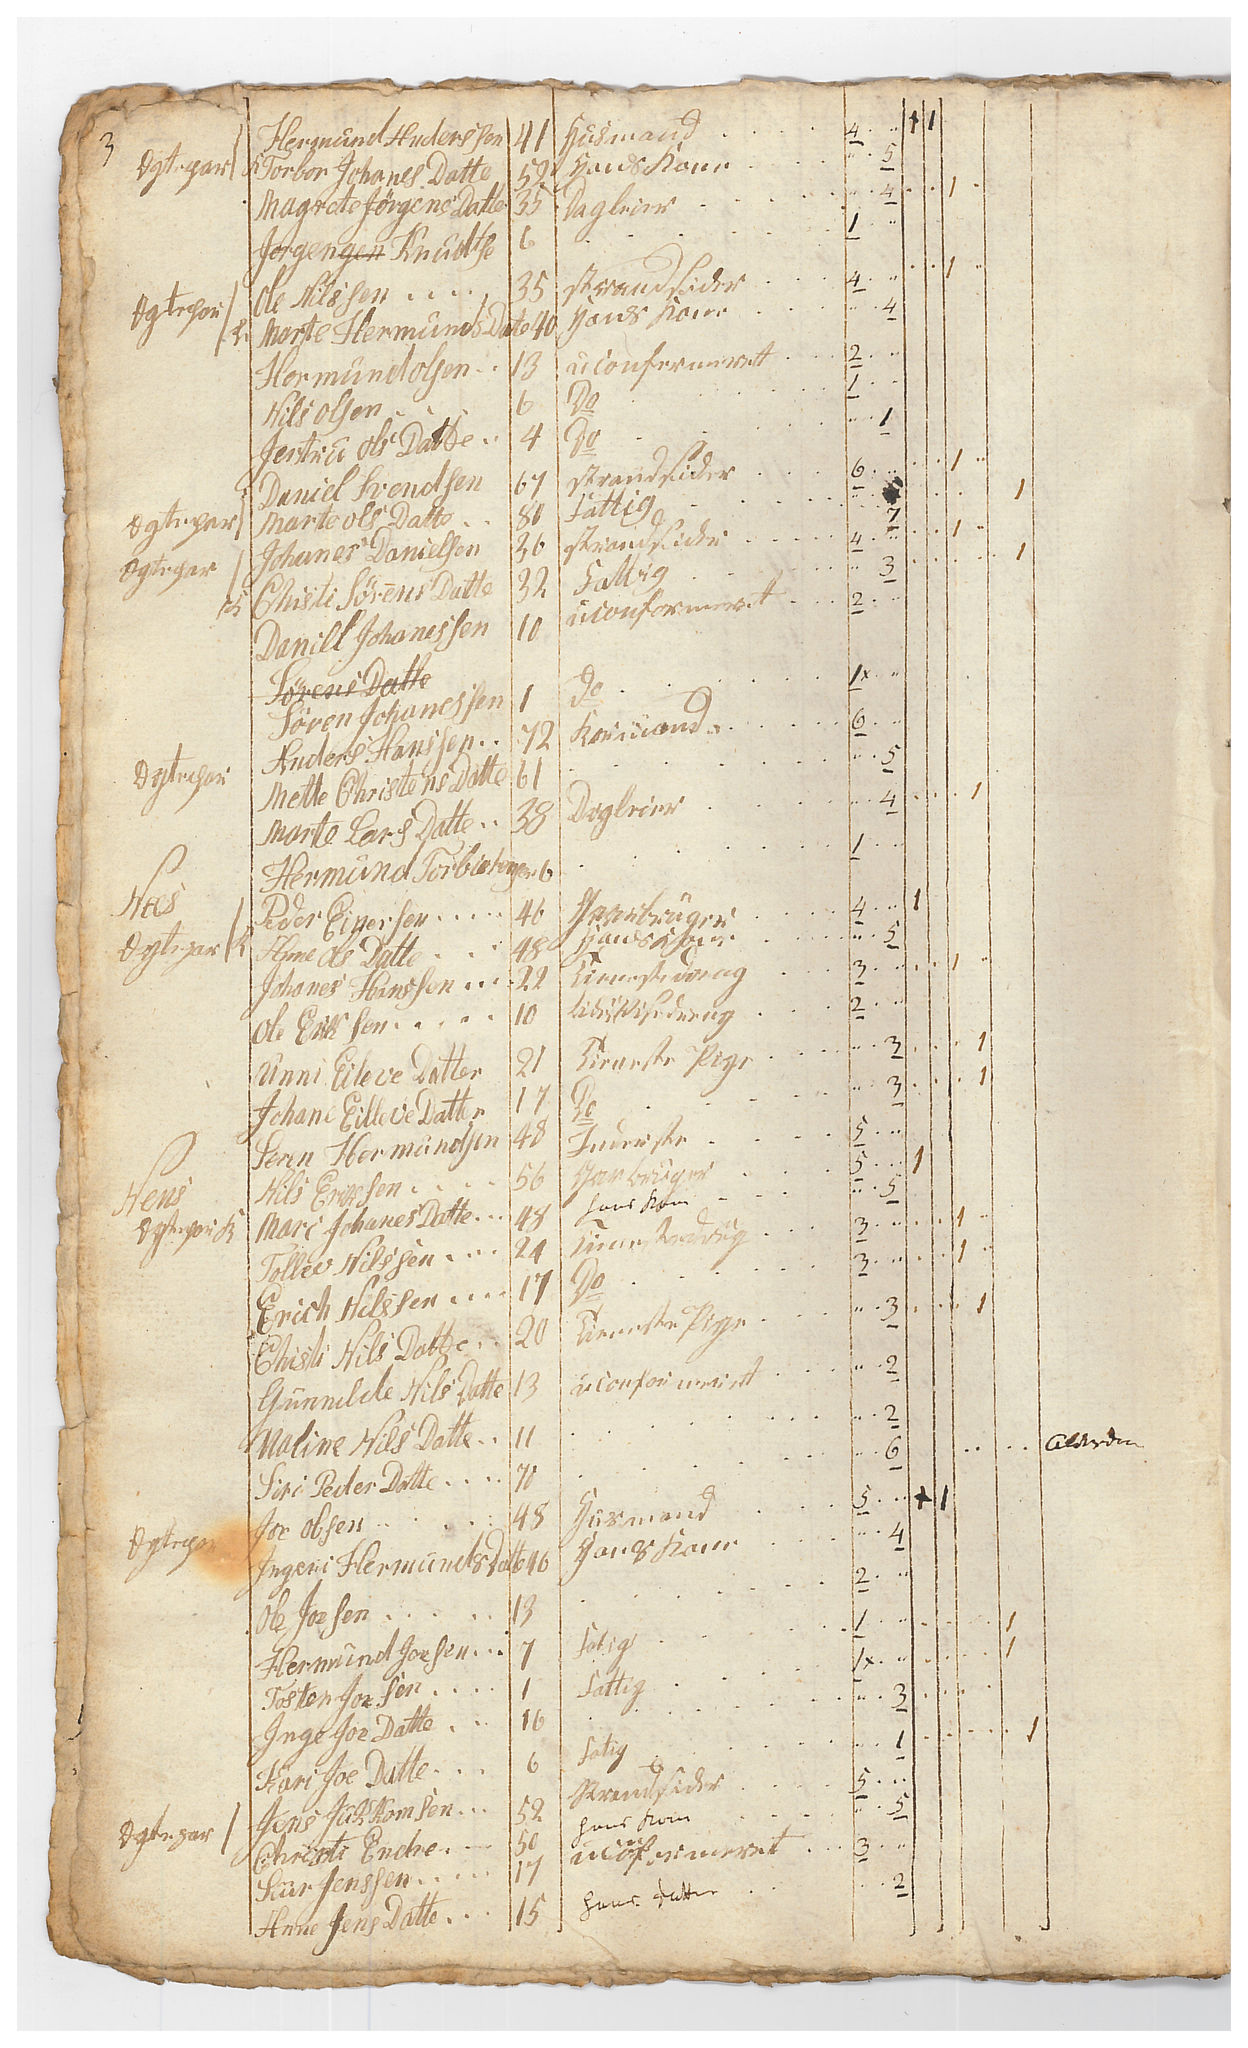 3
Hermund Anderssen 41 Husmand 4 " + 1
Ægtepar Torbor Johanes Datte 52 Hans Kone " 5
Magrete Jörgens Datte 35 Dagleier " 4 1
Jorgengen Knudtse 6 1 "
Ole Nilssen 35 strandsider 4 " 1 "
Ægtepar Marte Hermunds Date 40 Hans Kone " 4
Hermund olsen 13 uconfermeret 2 "
Nils olsen 6 Do 1 "
Jertru ols Datte 4 Do " 1
Daniel Svendsen 67 strandsider 6 " 1 "
Ægtepar Marte ols Datte 80 Fattig " 7 1
Ægtepar Johanes Danielsen 36 strandsider 4 " 1 "
Christi Sörens Datte 32 Fattig " 3 1
Danill Johanessen 10 uconfermeret 2 "
Sörens Datte
Sören Johanessen 1 Do 1x "
Anders Hanssen 72 6 "
Ægtepar Mette Christens Datte 61 " 5
Marte Lars Datte 38 Dagleier " 4 1
Hermund 6 1 "
Næs
Peder Ejversen 46 Gaarbruger 4 " 1
Ægtepar Anne ols Datte 48 Hans Kone " 5
Johanes Hanssen 22 Tieneste dreng 3 " 1 "
Ole Eriksen 10 2 "
Unni Eileve Datter 21 Tieneste Pige " 3 1
Johane Eilleve Datter 17 Do " 3 1
Seren Hermundsen 48 Inderste 5 "
Nens
Nils Ericksen 56 Gaarbruger 5 " 1
Ægtepar Mari Johanes Datte 48 hans Kone " 5
Tollev Nilssen 24 Tienestedreng 3 " 1 "
Erich Nilssen 17 Do 3 " 1 "
Christi Nils Datte 20 Tieneste Pige " 3 1
Gunnilde Nils Datte 13 uconfermeret " 2
Maline Nils Datte 11 " 2
Siri Peder Datte 70 " 6
Joe olsen 48 Husmand 5 " + 1
Ægtepar Ingeri Hermunds Datte 46 Hans Kone " 4
Ole Joesen 13 2 "
Hermund Joesen 7 Fatig 1 " 1
Tosten Joesen 1 Fattig 1x " 1
Inge Joe Datte 16 " 3
Kari Joe Datte 6 Fatig " 1 1
Jens 52 Strandsider 5 "
Ægtepar Christi Endre 50 hans Kone " 5
Jenssen 17 uconfermeret 3 "
Anne Jens Datte 15 hans Datter " 2